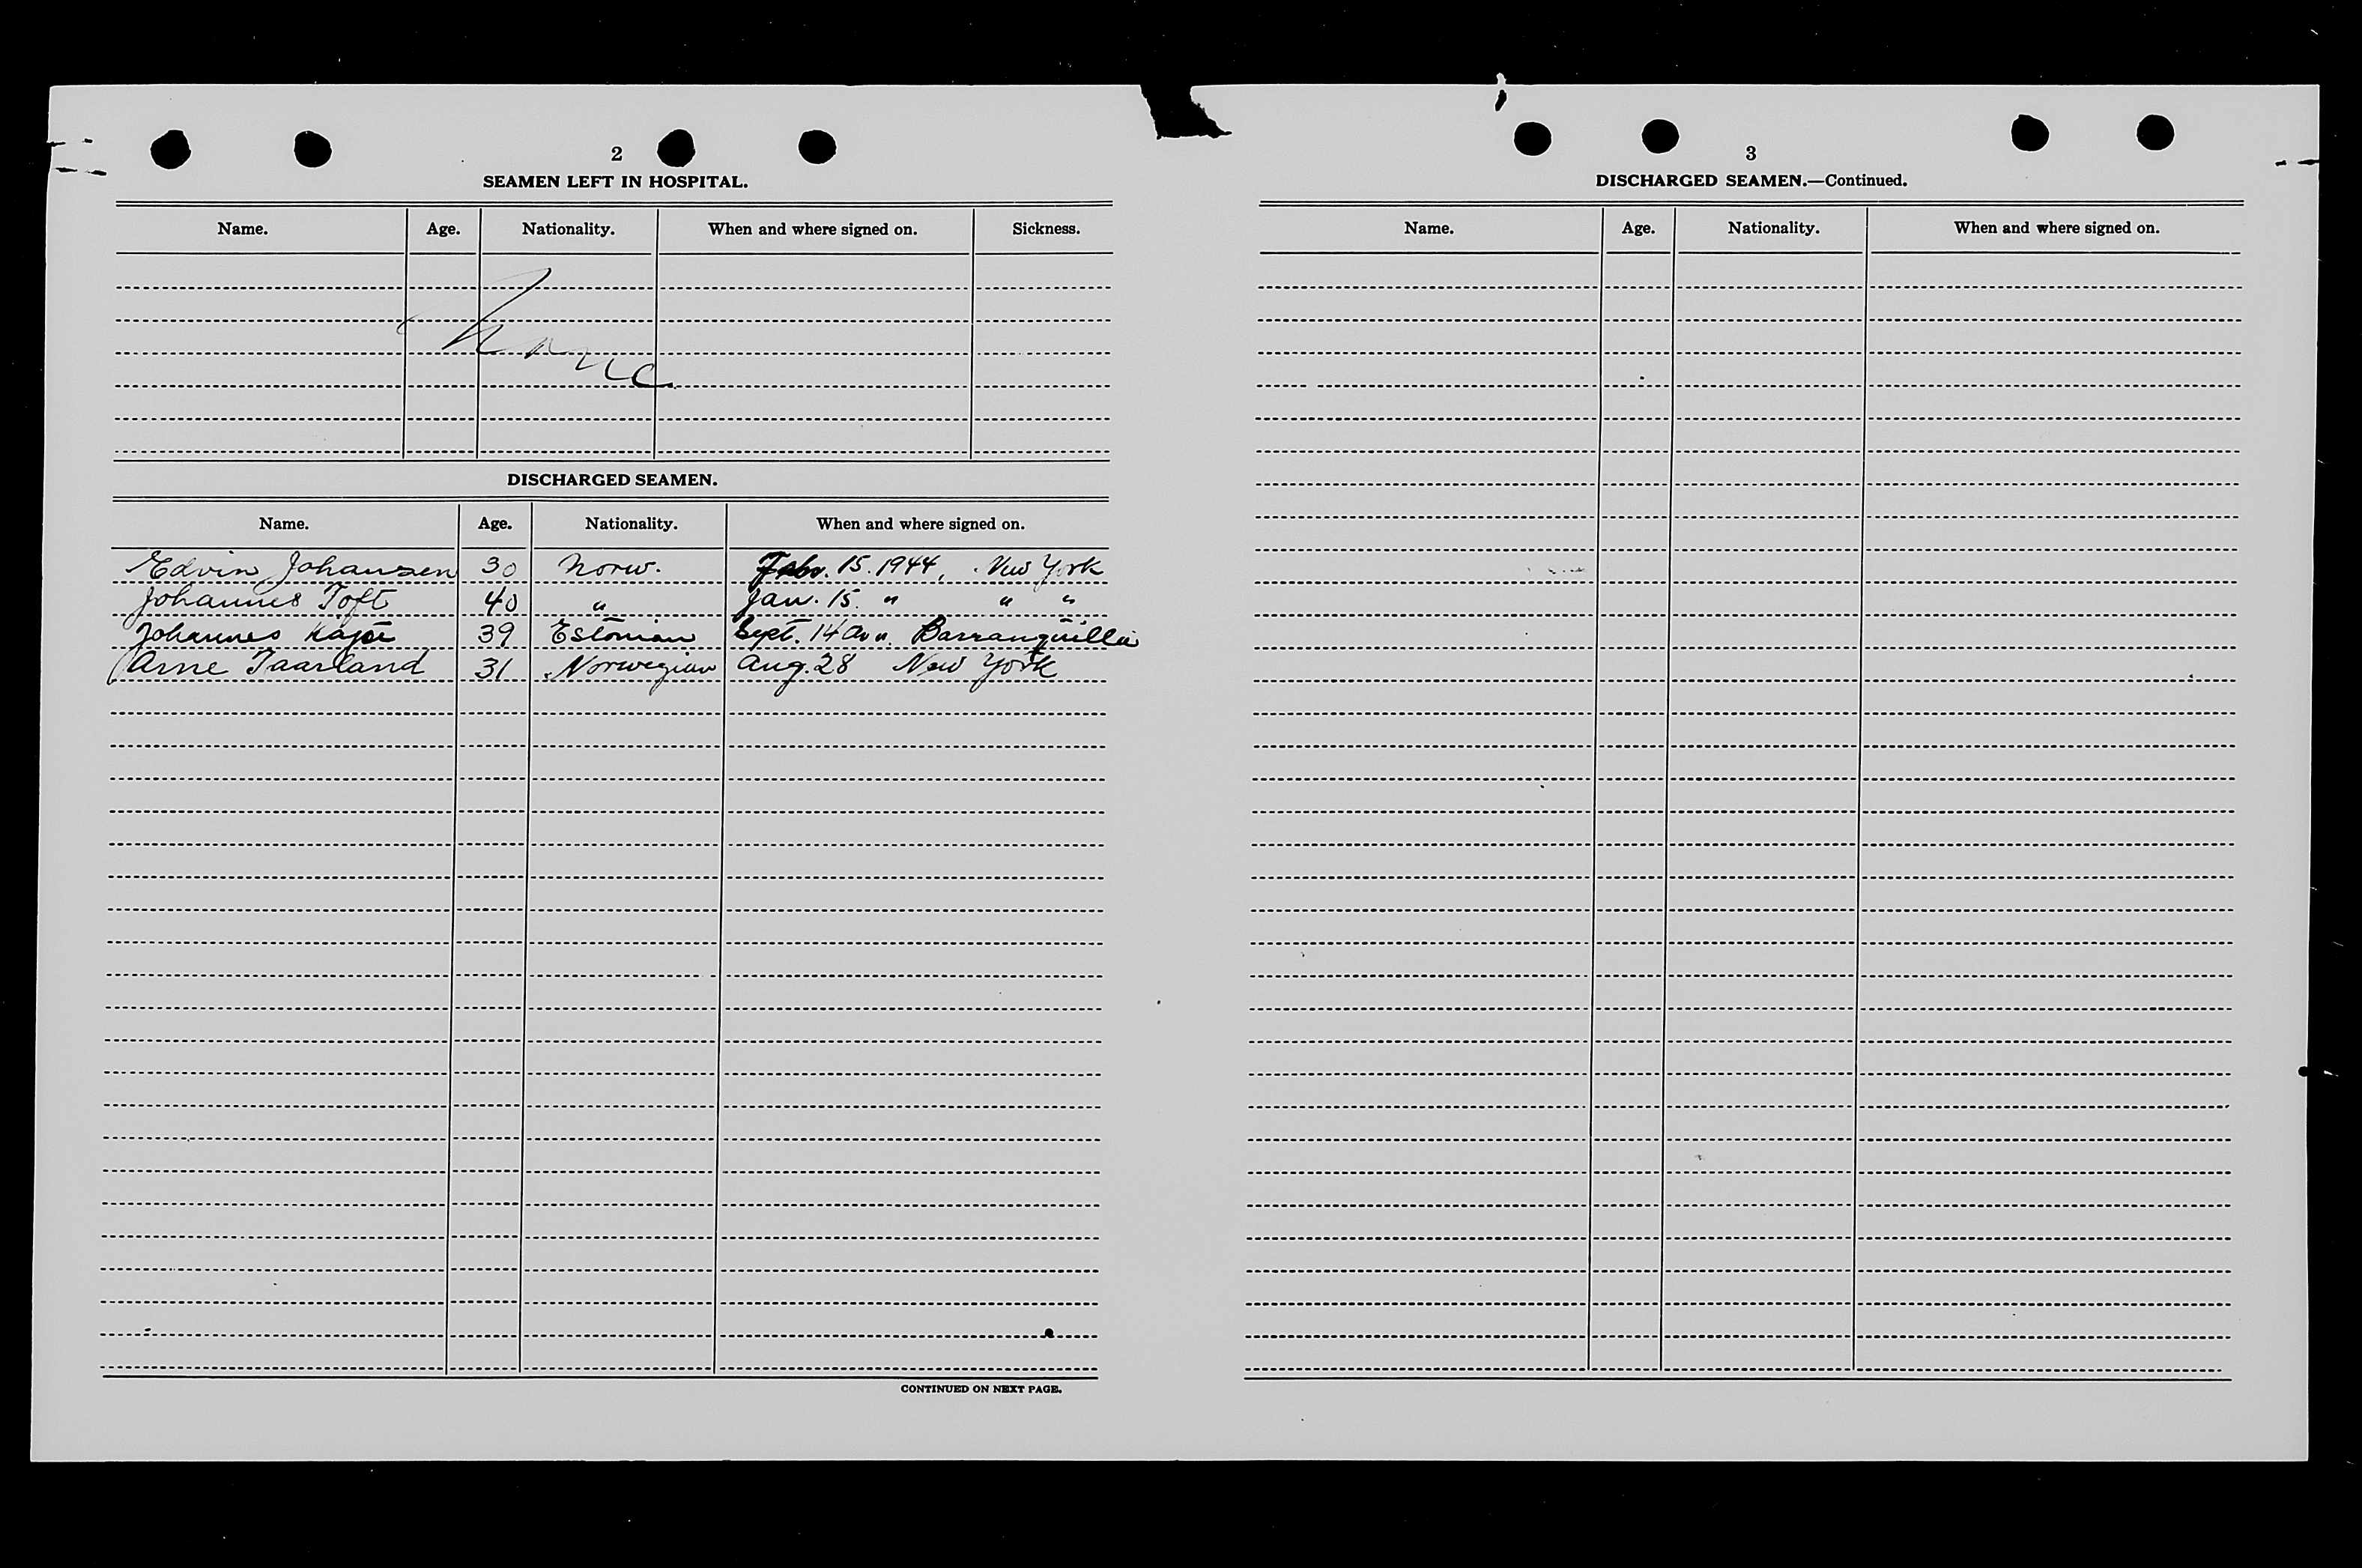 2
SEAMEN LEFT IN HOSPITAL.
Name. Age. Nationality. When and where signed on. Sickness.
None
DISCHARGED SEAMEN.
Name. Age. Nationality. When and where signed on.
Edvin Johansen 30 Norw. Febr. 15. 1944, New York
Johannes Toft 40 " Jan. 15. " " "
Johannes 39 Estonian Sept. 14 Barranquilla
Arne Taarland 31 Norwegian Aug. 28 New York
CONTINUED ON NEXT PAGE.
3
DISCHARGED SEAMEN.—Continued.
Name. Age. Nationality. When and where signed on.